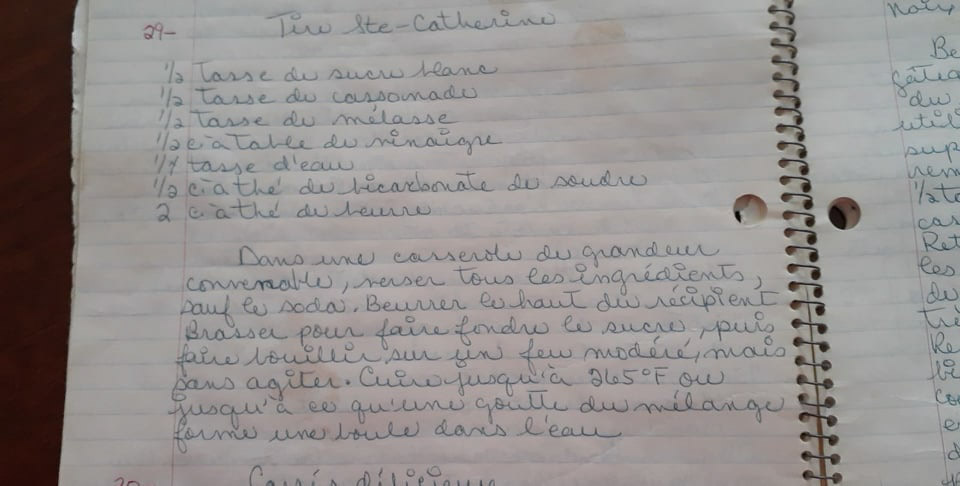 29- Tire Ste-Catherine
1/2 Tasse de sucre blanc
1/2 Tasse de cassonade
1/2 Tasse de mélasse
1/2 c. à Table de vinaigre
1/4 tasse d'eau
1/2 c. à thé de bicarbonate de soudre
2 c. à thé de beurre
Dans une casserole de grandeur
convenable, verser tous les ingrédients,
sauf le soda. Beurrer le haut du récipient
Brasser pour faire fondre le sucre, puis
faire bouillir sur un feu modéré, mais
sans agiter. Cuire jusqu'à 265°F ou
jusqu'à ce qu'une goutte du mélange
forme une boule dans l'eau
noix,
Be
du
util
sup
1/2 ta
cas
Ret
les
du